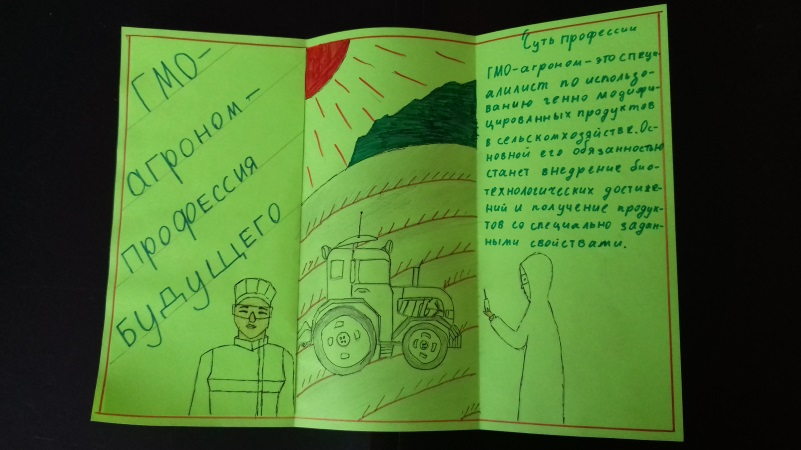 ГМО-
агроном-
профессия
БУДУЩЕГО
Суть профессии
ГМО-агроном-это специ-
алилист по использо-
ванию генно модифи-
цированных продуктов
в сельскомхозяйстве. Ос-
новной его обязанностью
станет внедрение био-
технологических достиже-
ний и получение продук-
тов со специально задан-
ными свойствами.